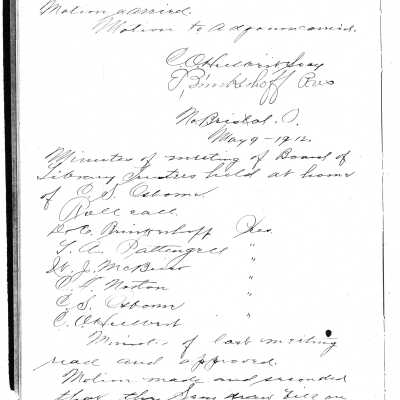 Motion carried.
Motion to adjourn carried.
C. O. Hurlburt Secy
Brinkerhoff Pres
No Bristol. O.
May 9 - 1912
Minutes of meeting of Board of
Library Trustees held at home
of C. S. Osborn
Roll call
Brinkerhoff Yes
Pattengell "
W. J. McBride "
Norton "
C. S. Osborn "
C. O Hurlburt "
Minutes of last meeting
read and approved.
Motion made and seconded
that the Secy draw